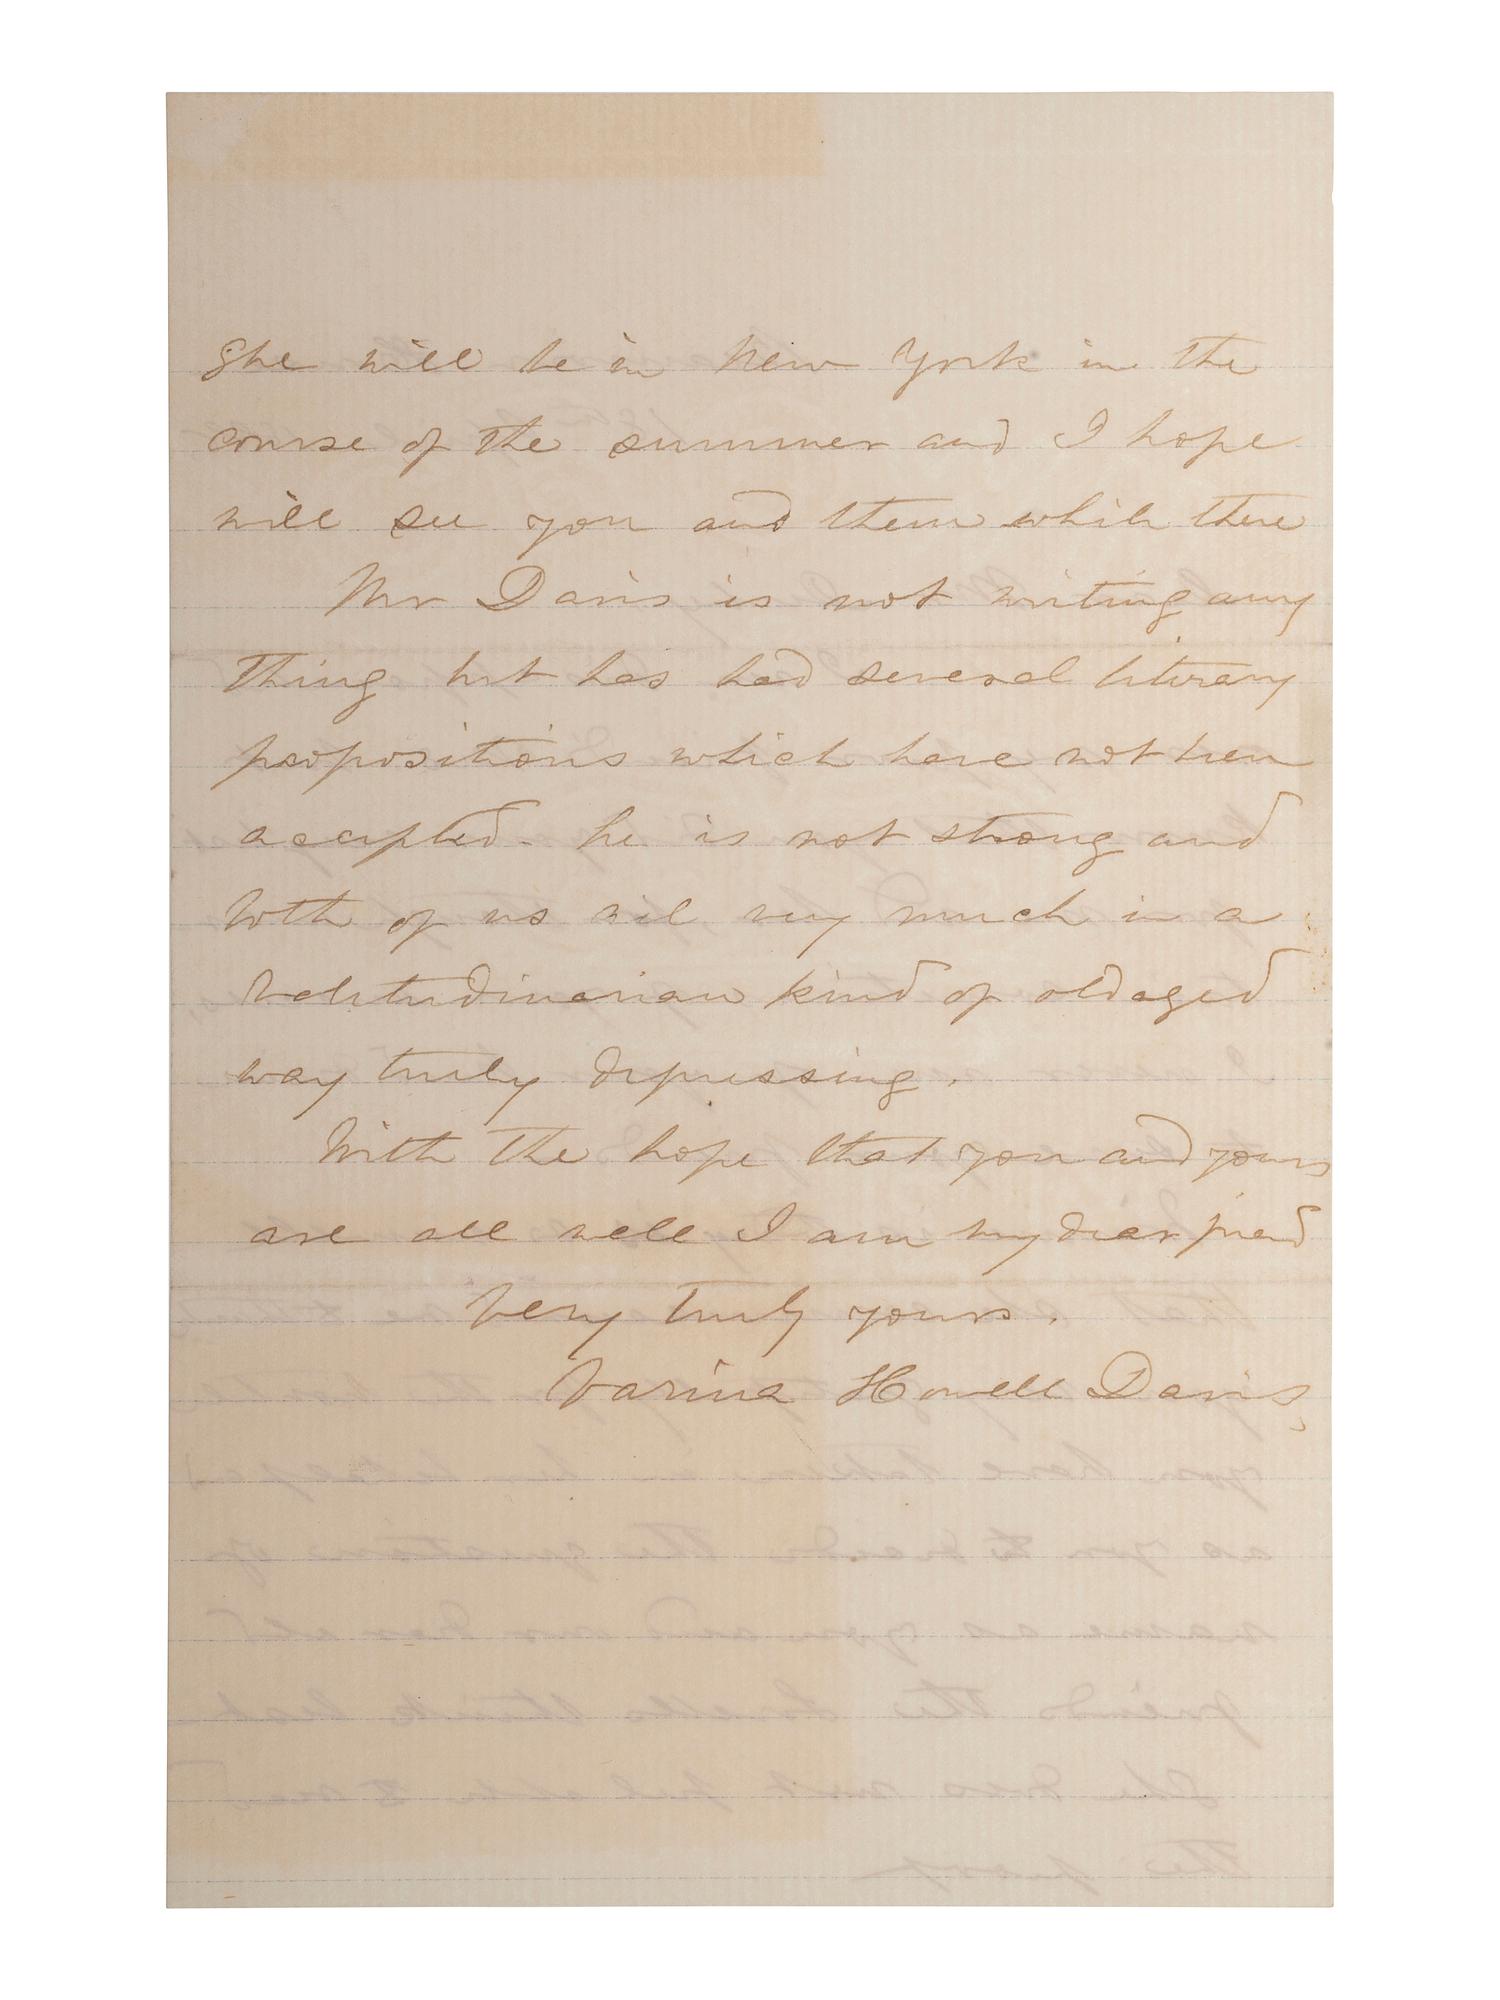 She will be in New York in the
course of the summer and I hope
will see you and them while there
Mr Davis is not writing any
thing but has had several literary
propositions which have not been
accepted - he is not strong and
both of us ail very much in a
Valetudinarian kind of old aged
way truly depressing.
With the hope that you and yours
are all well I am my dear friend
Very truly yours.
Varina Howell Davis,